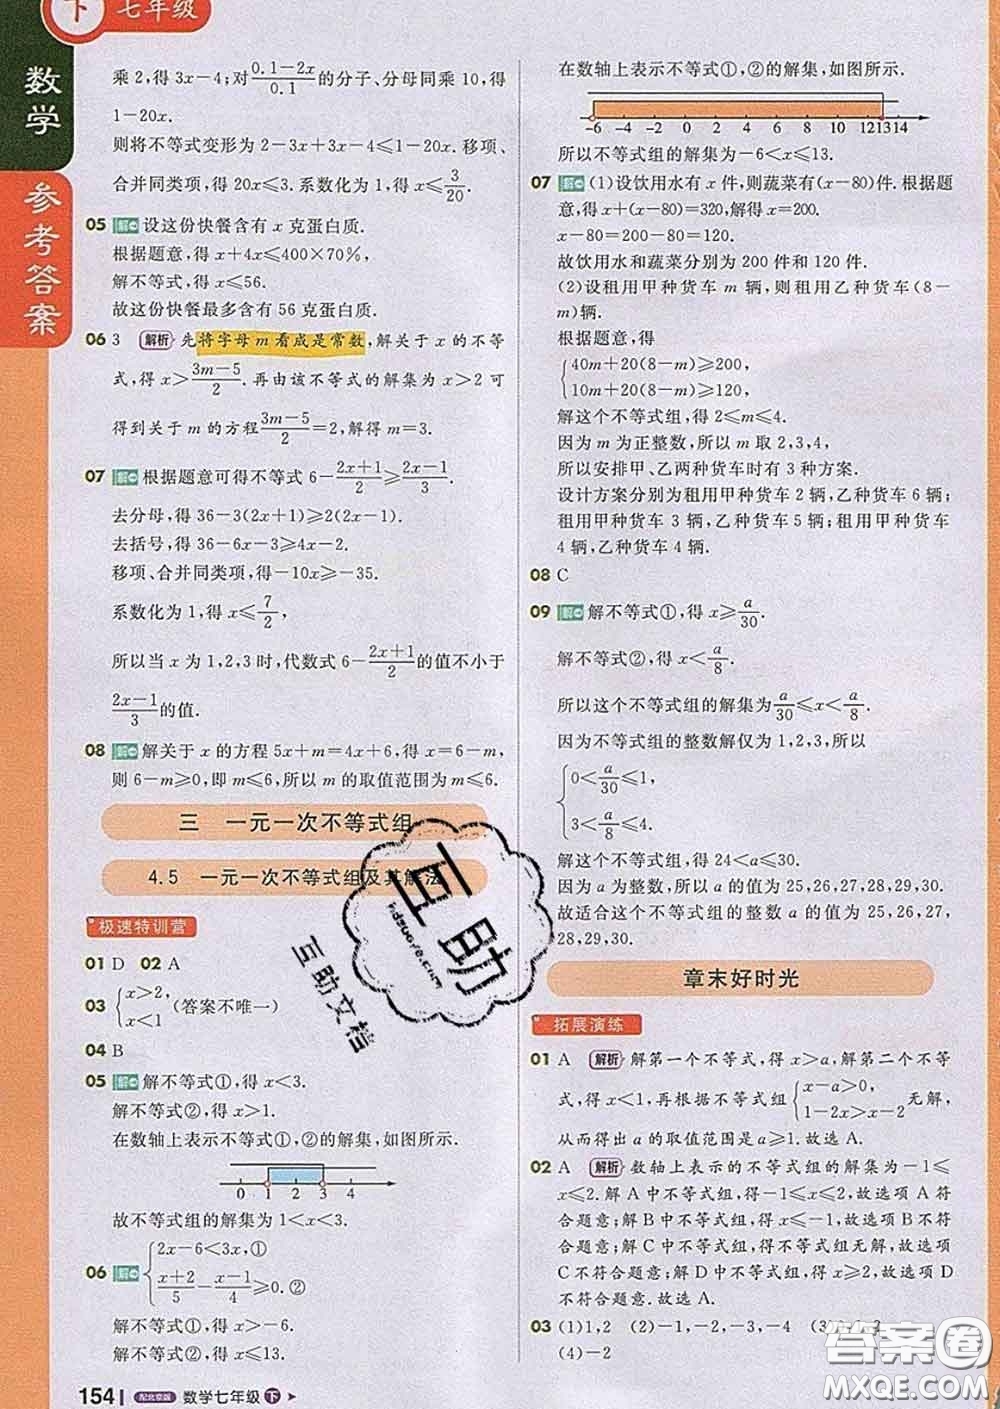 下 七年级
数学
参考答案
乘 2,得 3x-4;对(0.1-2x)/0.1的分子、分母同乘 10,得
1-20x.
则将不等式变形为 2-3x+3x-4≤1-20x.移项、
合并同类项,得 20x≤3.系数化为 1,得 x≤3/20.
05 解 设这份快餐含有 x 克蛋白质.
根据题意,得 x+4x≤400×70%,
解不等式,得 x≤56.
故这份快餐最多含有 56 克蛋白质.
06 3 解析 先将字母 m 看成是常数,解关于 x 的不等
式,得 x>(3m-5)/2.再由该不等式的解集为 x>2 可
得到关于 m 的方程(3m-5)/2=2,解得 m=3.
07 解 根据题意可得不等式 6-(2x+1)/2≥(2x-1)/3.
去分母,得 36-3(2x+1)≥2(2x-1).
去括号,得 36-6x-3≥4x-2.
移项、合并同类项,得-10x≥-35.
系数化为 1,得 x≤7/2,
所以当 x 为 1,2,3 时,代数式 6-(2x+1)/2的值不小于
(2x-1)/3的值.
08 解 解关于 x 的方程 5x+m=4x+6,得 x=6-m,
则 6-m≥0,即 m≤6,所以 m 的取值范围为 m≤6.
三 一元一次不等式组
4.5 一元一次不等式组及其解法
极速特训营
01 D 02 A
03 {x>2, x<1 (答案不唯一)
04 B
05 解 解不等式①,得 x<3.
解不等式②,得 x>1.
在数轴上表示不等式①,②的解集,如图所示.
0 1 2 3 4
故不等式组的解集为 1<x<3.
06 解 {2x-6<3x,① (x+2)/5-(x-1)/4≥0.②
解不等式①,得 x>-6.
解不等式②,得 x≤13.
154 配北京版 数学七年级 下
在数轴上表示不等式①,②的解集,如图所示.
-6 -4 -2 0 2 4 6 8 10 12 13 14
所以不等式组的解集为-6<x≤13.
07 解 (1)设饮用水有 x 件,则蔬菜有(x-80)件.根据题
意,得 x+(x-80)=320,解得 x=200.
x-80=200-80=120.
故饮用水和蔬菜分别为 200 件和 120 件.
(2)设租用甲种货车 m 辆,则租用乙种货车(8-
m)辆.
根据题意,得
{40m+20(8-m)≥200,
10m+20(8-m)≥120,
解这个不等式组,得 2≤m≤4.
因为 m 为正整数,所以 m 取 2,3,4,
所以安排甲、乙两种货车时有 3 种方案.
设计方案分别为租用甲种货车 2 辆,乙种货车 6 辆;
租用甲种货车 3 辆,乙种货车 5 辆;租用甲种货车
4 辆,乙种货车 4 辆.
08 C
09 解 解不等式①,得 x≥a/30.
解不等式②,得 x<a/8.
所以这个不等式组的解集为a/30≤x<a/8.
因为不等式组的整数解仅为 1,2,3,所以
{0<a/30≤1,
3<a/8≤4.
解这个不等式组,得 24<a≤30.
因为 a 为整数,所以 a 的值为 25,26,27,28,29,30.
故适合这个不等式组的整数 a 的值为 25,26,27,
28,29,30.
章末好时光
拓展演练
01 A 解析 解第一个不等式,得 x>a,解第二个不等
式,得 x<1,再根据不等式组{x-a>0, 1-2x>x-2无解,
从而得出 a 的取值范围是 a≥1.故选 A.
02 A 解析 数轴上表示的不等式组的解集为-1≤
x≤2.解 A 中不等式组,得-1≤x≤2,故选项 A 符
合题意;解 B 中不等式组,得 x≤-1,故选项 B 不符
合题意;解 C 中不等式组,得不等式组无解,故选项
C 不符合题意;解 D 中不等式组,得 x≥2,故选项 D
不符合题意.故选 A.
03 (1)1,2 (2)-1,-2,-3,-4
(4)-2
互助
kdzuoye.com
互助文档
答案圈
MXQE.COM